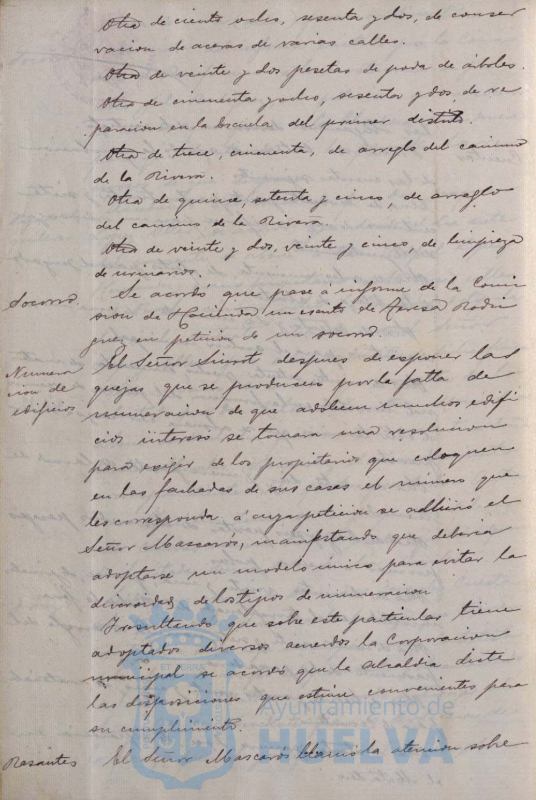 Otra de ciento ocho, sesenta y dos, de conser
vacion de aceras de varias calles.
Otra de veinte y dos pesetas de poda de árboles.
Otra de cincuenta y ocho, sesenta y dos, de re
paracion en la Escuela del primer distrito.
Otra de trece, cincuenta, de arreglo del camino
de la Rivera.
Otra de quince, setenta y cinco, de arreglo
del camino de la Rivera.
Otra de veinte y dos, veinte y cinco, de limpieza
de urinarios.
Socorro.
Se acordó que pase á informe de la Comi
sion de Hacienda un escrito de Teresa Rodri
guez en peticion de un socorro.
Numera
cion de
edificios
El Señor Siurot despues de esponer las
quejas que se producen por la falta de
numeracion de que adolecen muchos edifi
cios interesó se tomara una resolucion
para exigir de los propietarios que coloquen
en las fachadas de sus casas el número que
les corresponda, á cuya peticion se adhirió el
Señor Mascarós, manifestando que deberia
adoptarse un modelo único para evitar la
diversidad de los tipos de numeracion
Y resultando que sobre este particular tiene
adoptados diversos acuerdos la Corporacion
municipal se acordó que la alcaldia dicte
las disposiciones que estime convenientes para
su cumplimiento.
Rasantes
El Señor Mascarós llamó la atencion sobre
Ayuntamiento de
HUELVA